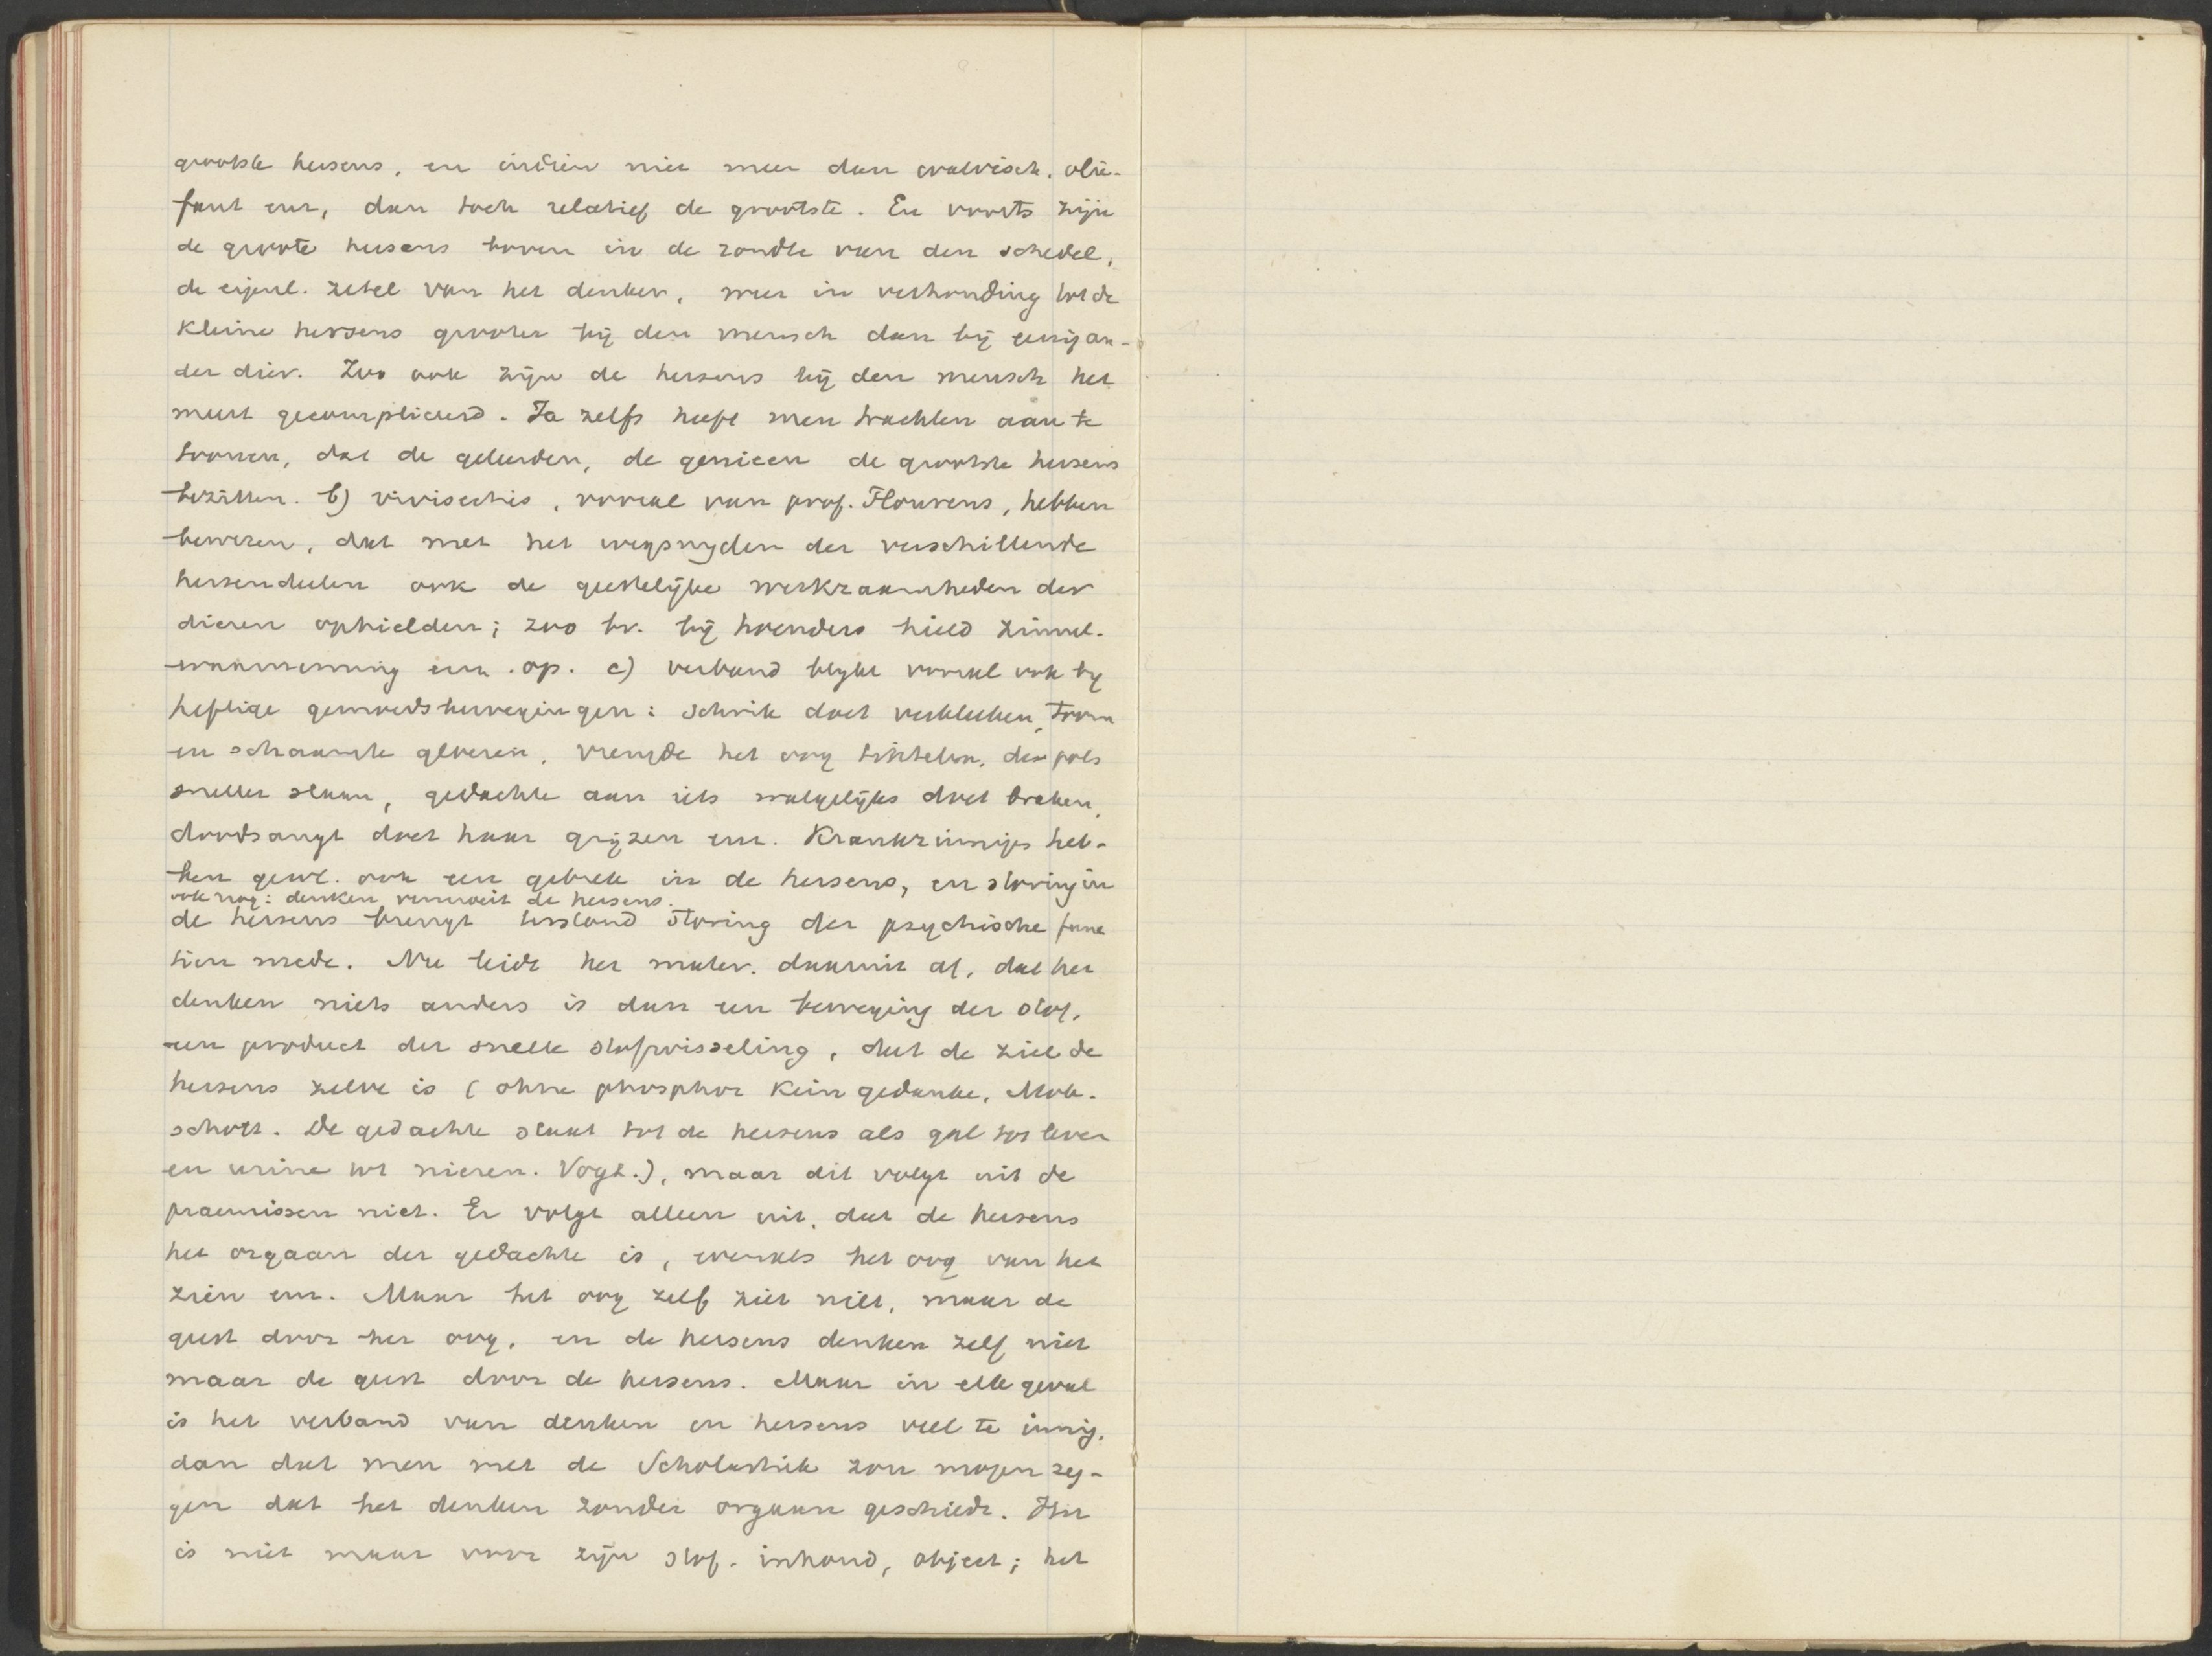 grootste hersens, en indien niet meer dan walvisch, olie-
fant enz, dan toch relatief de grootste. En voorts zijn
de groote hersens boven in de rondte van den schedel,
de eigenl. zetel van het denken, weer in verhouding tot de
kleine hersens grooter bij den mensch dan bij eenig an-
der dier. Zoo ook zijn de hersens bij den mensch het
meest gecompliceerd. Ja zelfs heeft men trachten aan te
toonen, dat de geleerden, de genieen de grootste hersens
bezitten. b) vivisectie, vooral van prof. Flourens, hebben
bewezen, dat met het wegsnyden der verschillende
hersendeelen ook de geestelijke werkzaamheden der
dieren ophielden; zoo bv. bij hoenders hield zinnel.
waarneming enz. op. c) verband blykt vooral ook by
heftige gemoedsbewegingen: schrik doet verbleeken, toorn
en schaamte gloeien, vreugde het oog tintelen, den pols
sneller slaan, gedachte aan iets walgelijks doet braken,
doodsangt doet haar grijzen enz. Krankzinnigs heb-
ben gewl. ook een gebrek in de hersens, en storing in
ook nog: denken vermoeit de hersens.
de hersens brengt terstond storing der psychische func
tien mede. Nu leidt het mater. daaruit af, dat het
denken niets anders is dan een beweging der stof,
een product der snelle stofwisseling, dat de ziel de
hersens zelve is (ohne phosphor kein gedanke, Mole-
schott. De gedachte staat tot de hersens als gal tot lever
en urine tot nieren. Vogt.), maar dit volgt uit de
praemissen niet. Er volgt alleen uit, dat de hersens
het orgaan der gedachte is, evenals het oog van het
zien enz. Maar het oog zelf ziet niet, maar de
geest door het oog, en de hersens denken zelf niet
maar de geest door de hersens. Maar in elk geval
is het verband van denken en hersens veel te innig,
dan dat men met de Scholastiek zou mogen zeg-
gen dat het denken zonder orgaan geschiedt. Het
is niet maar voor zijn stof. inhoud, object; het